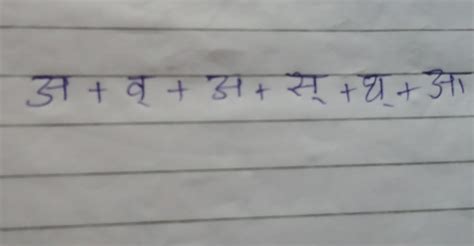 अ + व् + अ + स् + थ् + आ